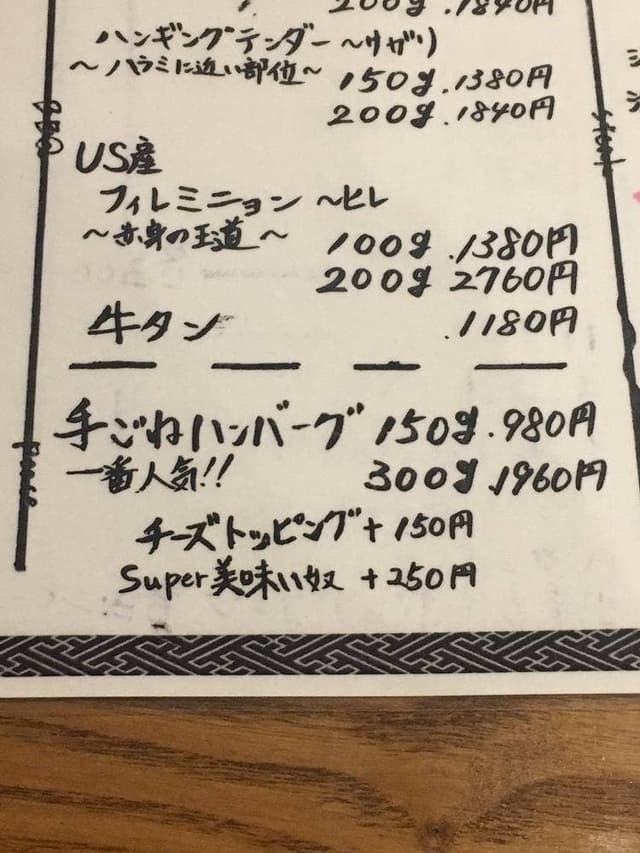 200g .1840円
ハンギングテンダー 〜サガリ
〜ハラミに近い部位〜 150g .1380円
200g .1840円
US産
フィレミニョン 〜ヒレ
〜赤身の王道〜 100g .1380円
200g 2760円
牛タン .1180円
手ごねハンバーグ 150g .980円
一番人気!! 300g .1960円
チーズトッピング + 150円
Super美味い奴 + 250円
BBQ
steak